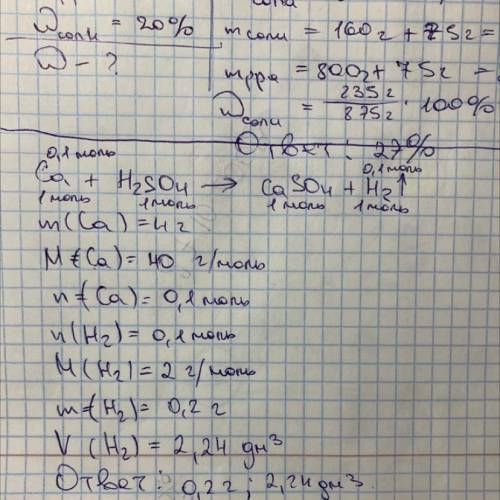 Wсоли = 20%
W - ?
mсоли = 160г + 75г =
mрра = 800г + 75г =
Wсоли = 235г / 875г · 100%
Ответ: 27%
0,1моль 0,1моль
Ca + H2SO4 → CaSO4 + H2↑
1моль 1моль 1моль 1моль
m(Ca) = 4г
M(Ca) = 40 г/моль
n(Ca) = 0,1моль
n(H2) = 0,1моль
M(H2) = 2 г/моль
m(H2) = 0,2г
V(H2) = 2,24 дм³
Ответ: 0,2г; 2,24дм³.